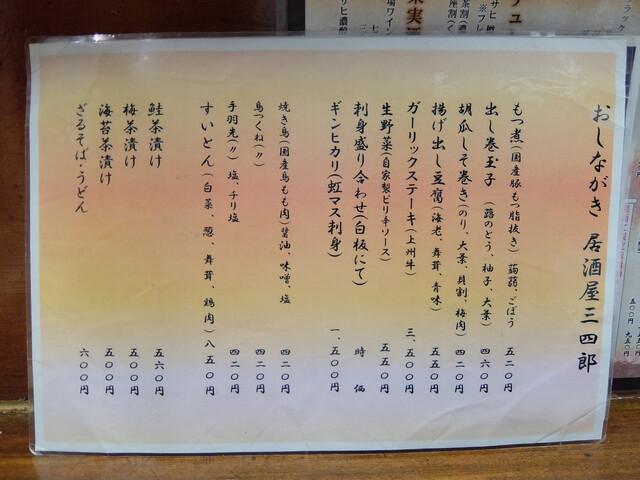 おしながき 居酒屋三四郎
もつ煮(国産豚もつ脂抜き) 蒟蒻、ごぼう 五二〇円
出し巻玉子 (蕗のとう、柚子、大葉) 四六〇円
胡瓜しそ巻き(のり、大葉、貝割、梅肉) 四二〇円
揚げ出し豆腐(海老、舞茸、青味) 五五〇円
ガーリックステーキ(上州牛) 三、五〇〇円
生野菜(自家製ピリ辛ソース) 五五〇円
刺身盛り合わせ(白板にて) 時価
ギンヒカリ(虹マス刺身) 一、五〇〇円
焼き鳥(国産鳥もも肉)醤油、味噌、塩 四二〇円
鳥つくね(〃) 四二〇円
手羽先(〃) 塩、チリ塩 四二〇円
すいとん(白菜、葱、舞茸、鶏肉) 八五〇円
鮭茶漬け 五六〇円
梅茶漬け 五〇〇円
海苔茶漬け 五〇〇円
ざるそば・うどん 六〇〇円